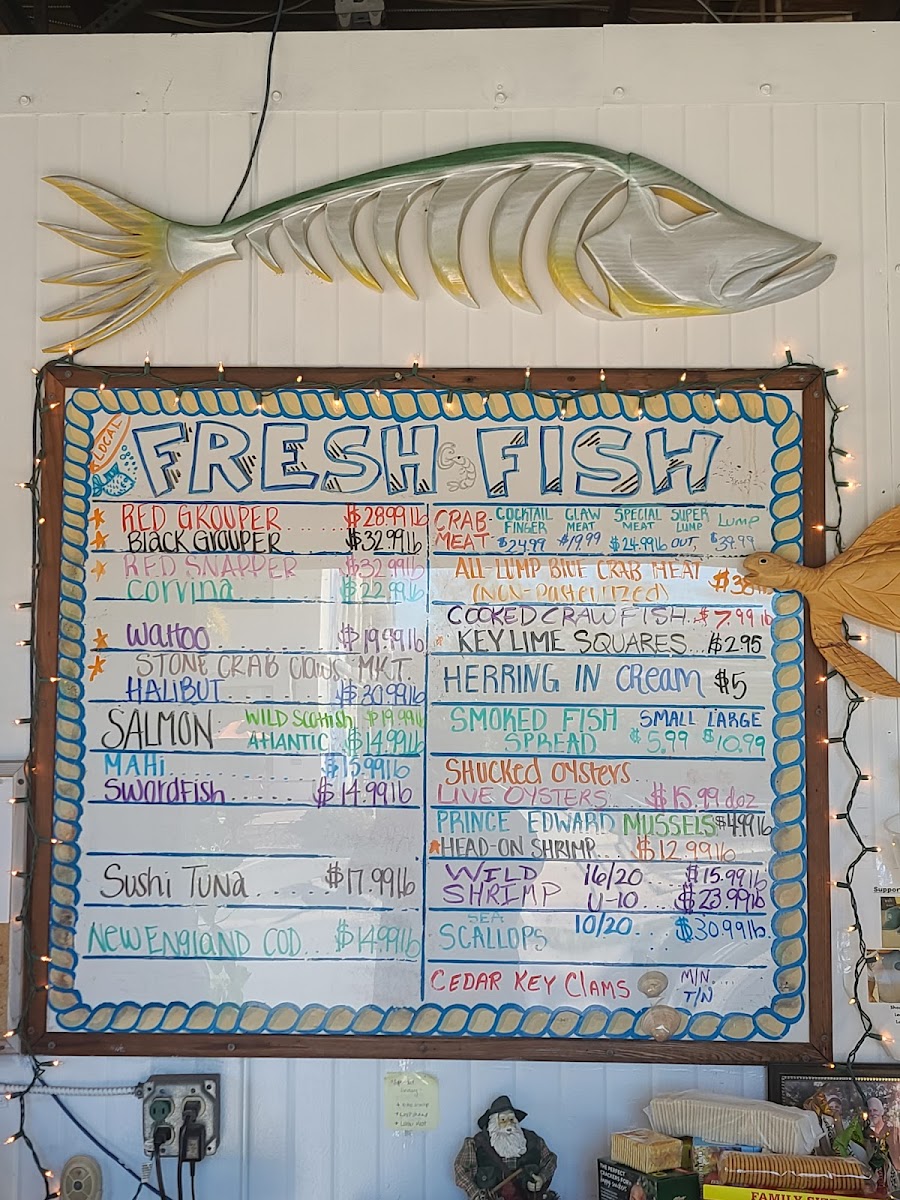 LOCAL
FRESH FISH
RED GROUPER ...... $28.99 lb
Black Grouper ...... $32.99 lb
RED SNAPPER ...... $32.99 lb
Corvina ...... $22.99 lb
Wahoo ...... $19.99 lb
STONE CRAB Claws MKT.
HALIBUT ...... $30.99 lb
SALMON
WILD Scottish $19.99 lb
Atlantic $14.99 lb
MAHi ...... $15.99 lb
Swordfish ...... $14.99 lb
Sushi Tuna .... $17.99 lb
NEW ENGLAND COD ... $14.99 lb
CRAB MEAT
COCKTAIL FINGER $24.99
CLAW MEAT $19.99
SPECIAL MEAT $24.99 lb
SUPER LUMP OUT
Lump $39.99
ALL LUMP BLUE CRAB MEAT
(NON-Pasteurized)
COOKED CRAWFISH .. $7.99 lb
KEY LIME SQUARES ... $2.95
HERRING IN Cream $5
SMOKED FISH SPREAD
SMALL LARGE
$5.99 $10.99
SHUCKED OYSTERS ..
LIVE OYSTERS ... $15.99 doz
PRINCE EDWARD MUSSELS $4.99 lb
HEAD-ON SHRIMP .... $12.99 lb
WILD SHRIMP
16/20 ... $15.99 lb
U-10 .... $23.99 lb
SEA SCALLOPS 10/20 .. $30.99 lb
CEDAR KEY CLAMS
M/N ....
T/N
Support
THE PERFECT
FAMILY SIZE